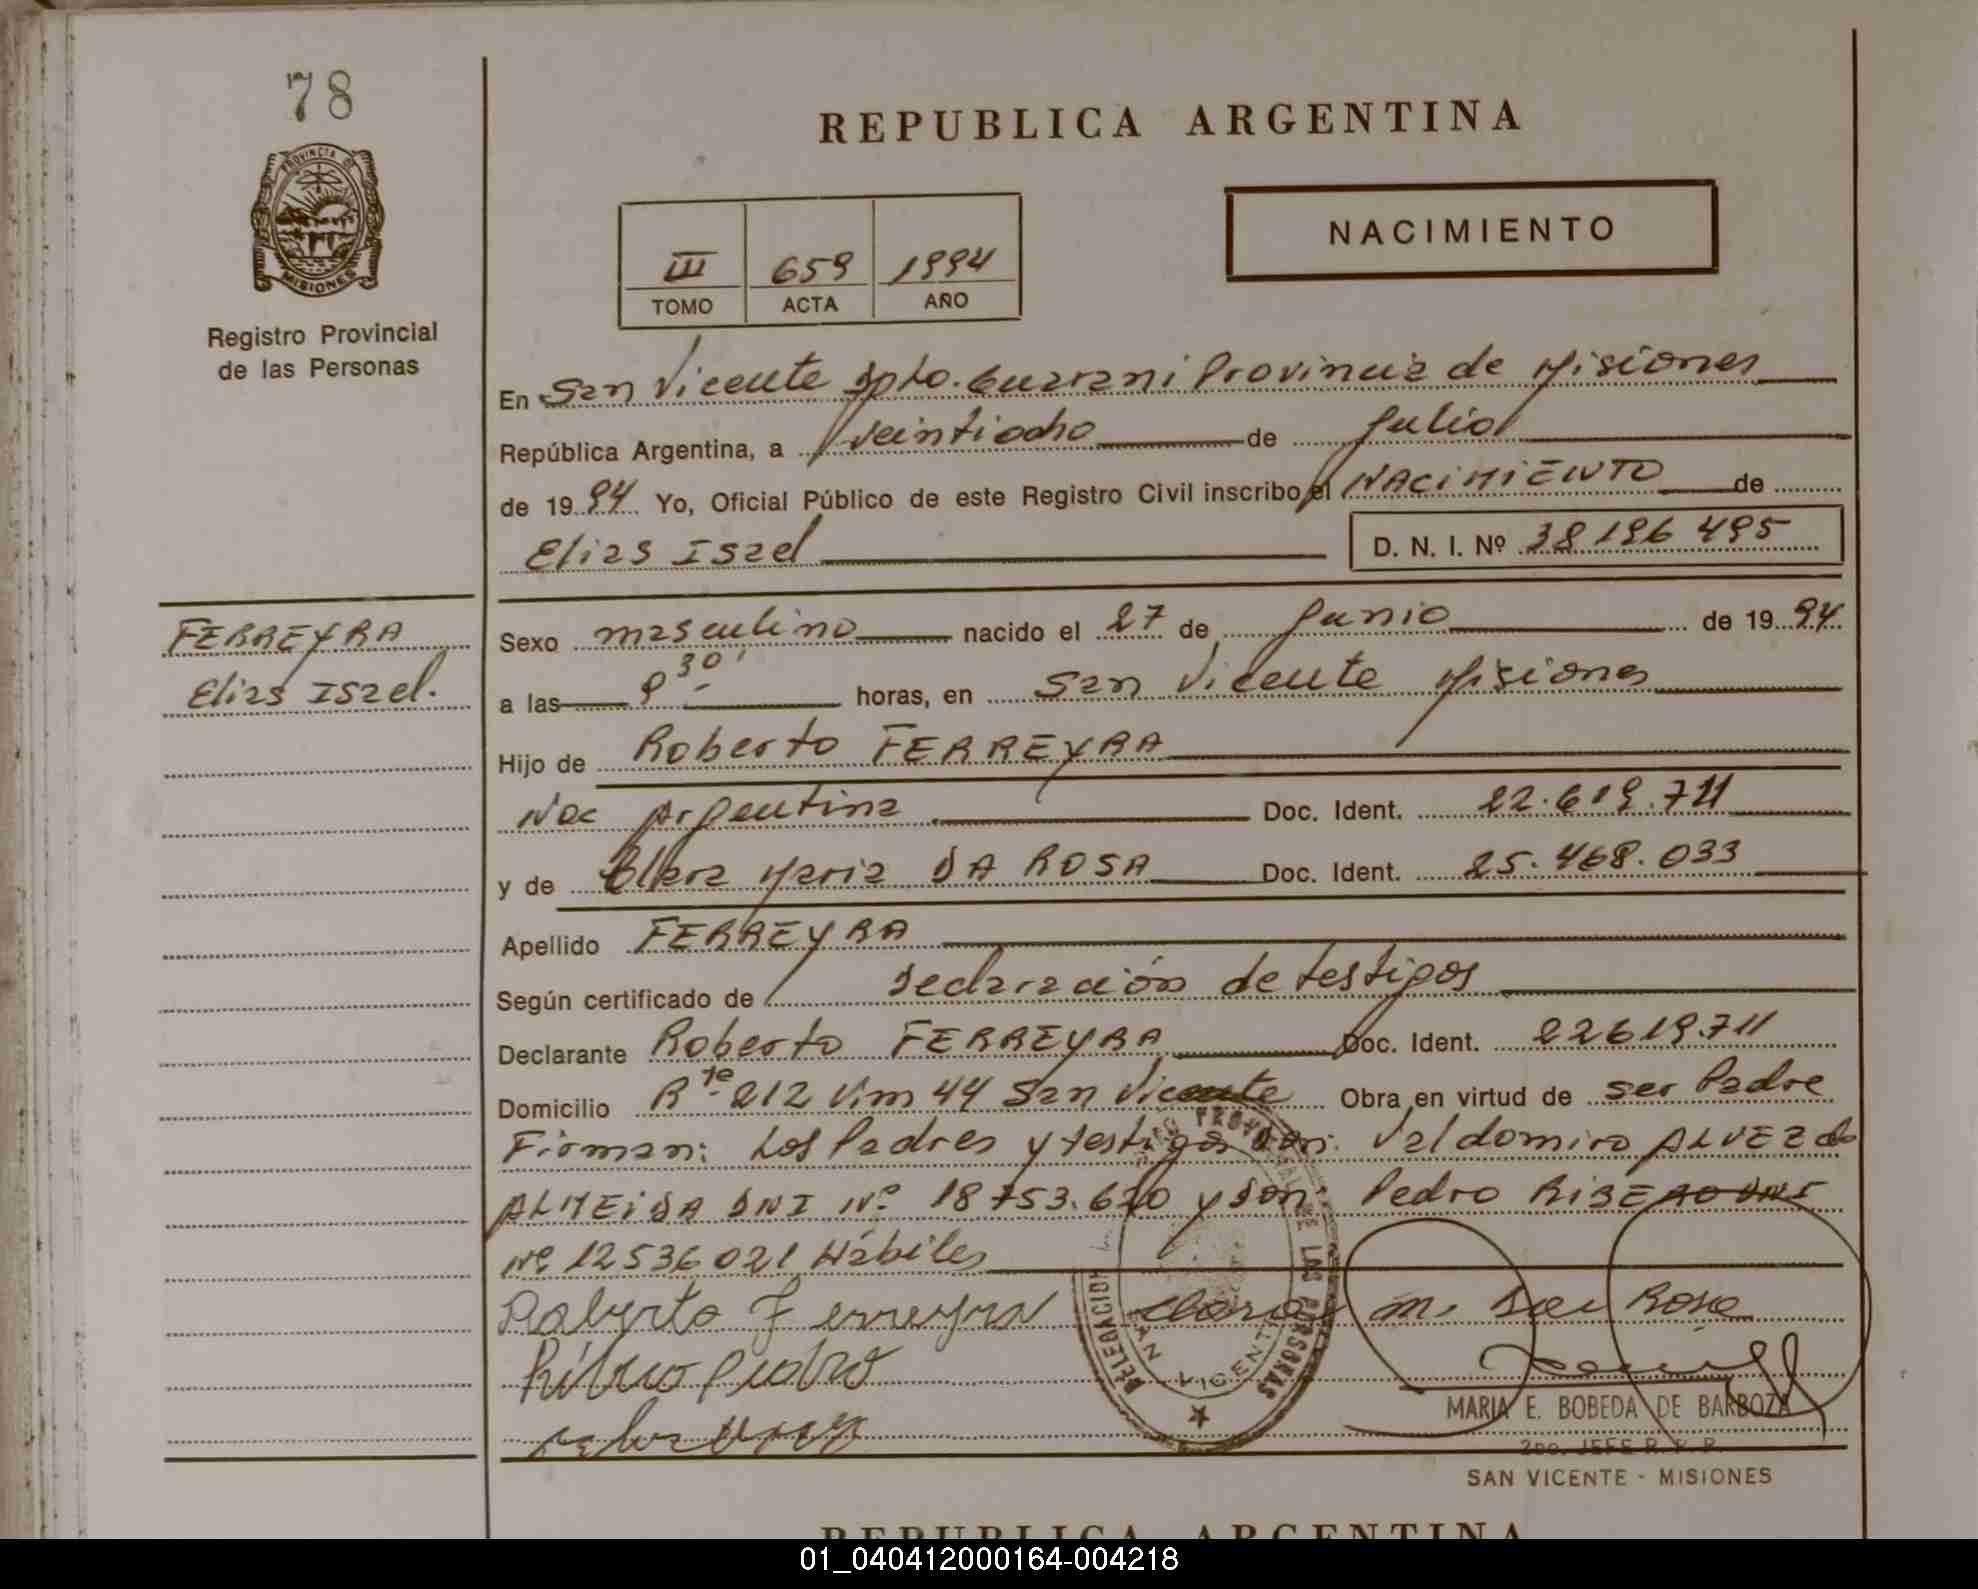 78
PROVINCIA DE
MISIONES
Registro Provincial
de las Personas
REPUBLICA ARGENTINA
III 659 1994
TOMO ACTA AÑO
NACIMIENTO
En San Vicente Dpto. Guarani Provincia de Misiones
República Argentina, a veintiocho de Julio
de 1994 Yo, Oficial Público de este Registro Civil inscribo el NACIMIENTO de
Elias Isael D. N. I. Nº 38 196 495
FERREYRA
Elias Isael.
Sexo masculino nacido el 27 de Junio de 1994.
a las 8 30' horas, en San Vicente Misiones
Hijo de Roberto FERREYRA
Nac Argentina Doc. Ident. 22.619.711
y de Clara Maria DA ROSA Doc. Ident. 25.468.033
Apellido FERREYRA
Según certificado de Declaración de testigos
Declarante Roberto FERREYRA Doc. Ident. 22619.711
Domicilio Rta 212 km 44 San Vicente Obra en virtud de ser Padre
Firman: Los Padres y testigos Don: Valdomiro ALVEZ de
ALMEIDA DNI Nº 18753.620 y Don: Pedro RIBERO DNI
Nº 12536021 Hábiles
Roberto Ferreyra Clara M. Da Rosa
Pedro
DELEGACION DE LAS PERSONAS
SAN VICENTE
MARIA E. BOBEDA DE BARBOZA
2do. JEFE R. P. P.
SAN VICENTE - MISIONES
REPUBLICA ARGENTINA
01_040412000164-004218